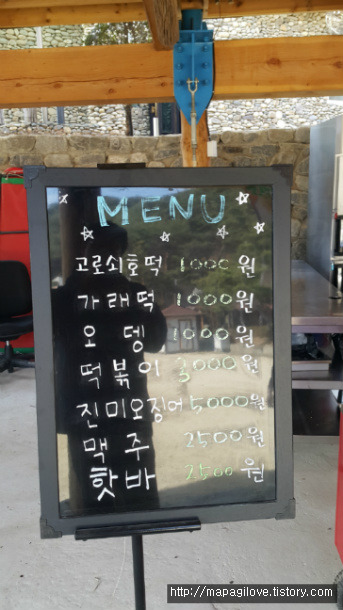 MENU
고로쇠호떡 1000원
가래떡 1000원
오뎅 1000원
떡볶이 3000원
진미오징어 5000원
맥주 2500원
핫바 2500원
http://mapagilove.tistory.com